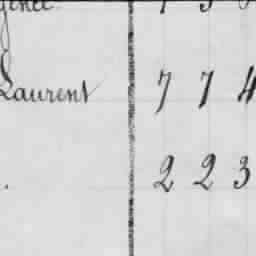 Laurent 7 7 4
2 2 3